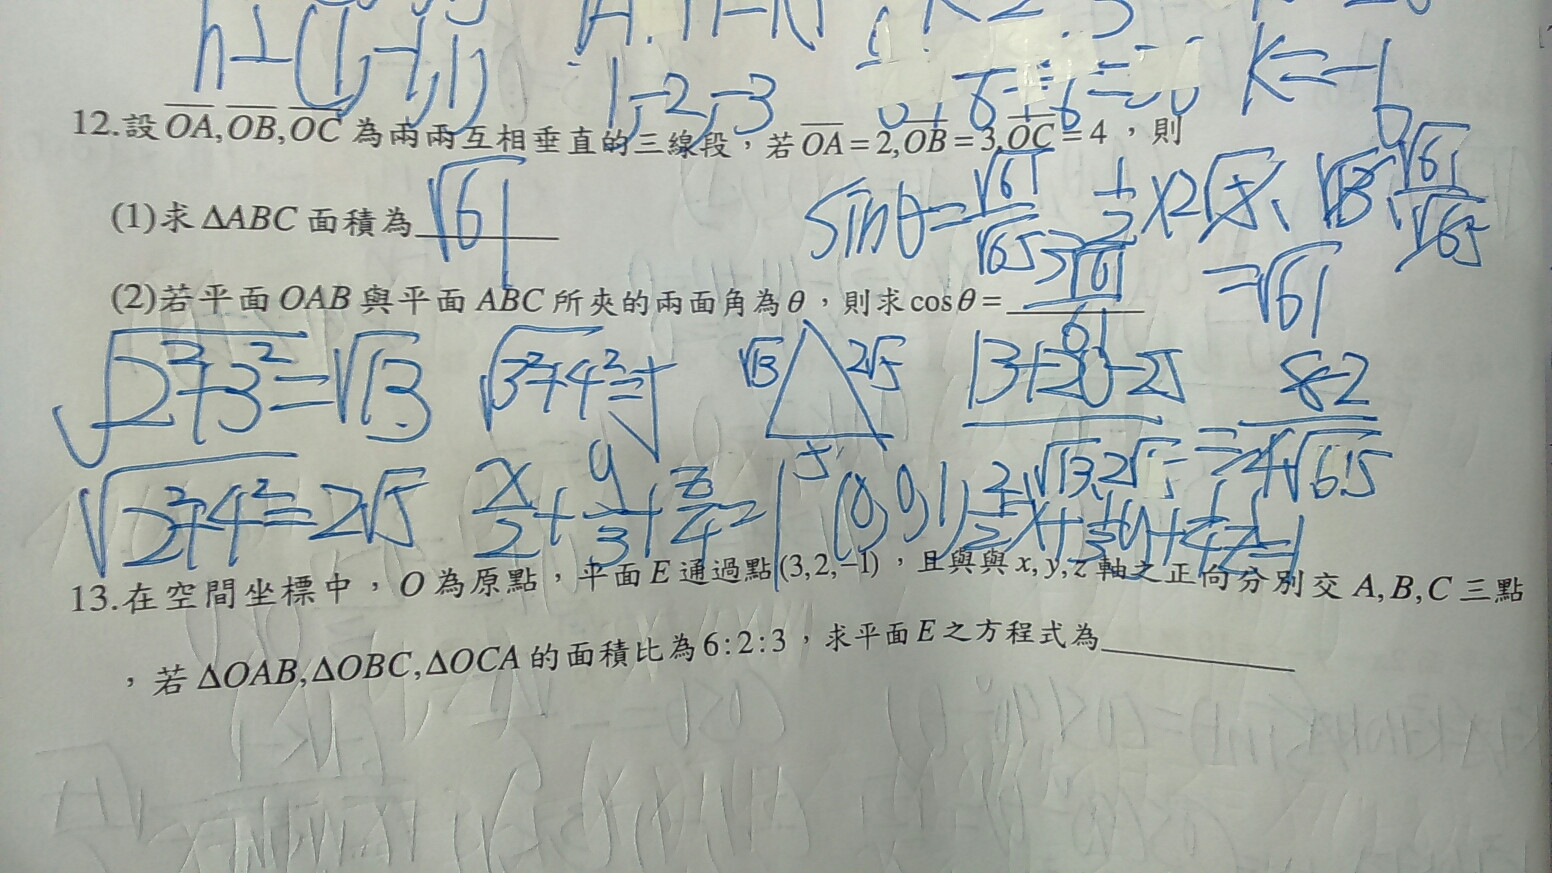 n⊥(1,-1,1)
1,-2,-3
K=-6
12.設OA,OB,OC為兩兩互相垂直的三線段,若OA=2,OB=3,OC=4,則
(1)求ΔABC面積為√61
sinθ=√61/√65
=√61
(2)若平面OAB與平面ABC所夾的兩面角為θ,則求cosθ=3√61/61
√2²+3²=√13
√3²+4²=5
√13 2√5
5
13+20-25/2·√13·2√5=8·2/4√65
√2²+4²=2√5
x/2+y/3+z/4=1
(0,0,1)
1/2x+1/3y+1/4z=1
13.在空間坐標中,O為原點,平面E通過點(3,2,-1),且與與x,y,z軸之正向分別交A,B,C三點
,若ΔOAB,ΔOBC,ΔOCA的面積比為6:2:3,求平面E之方程式為